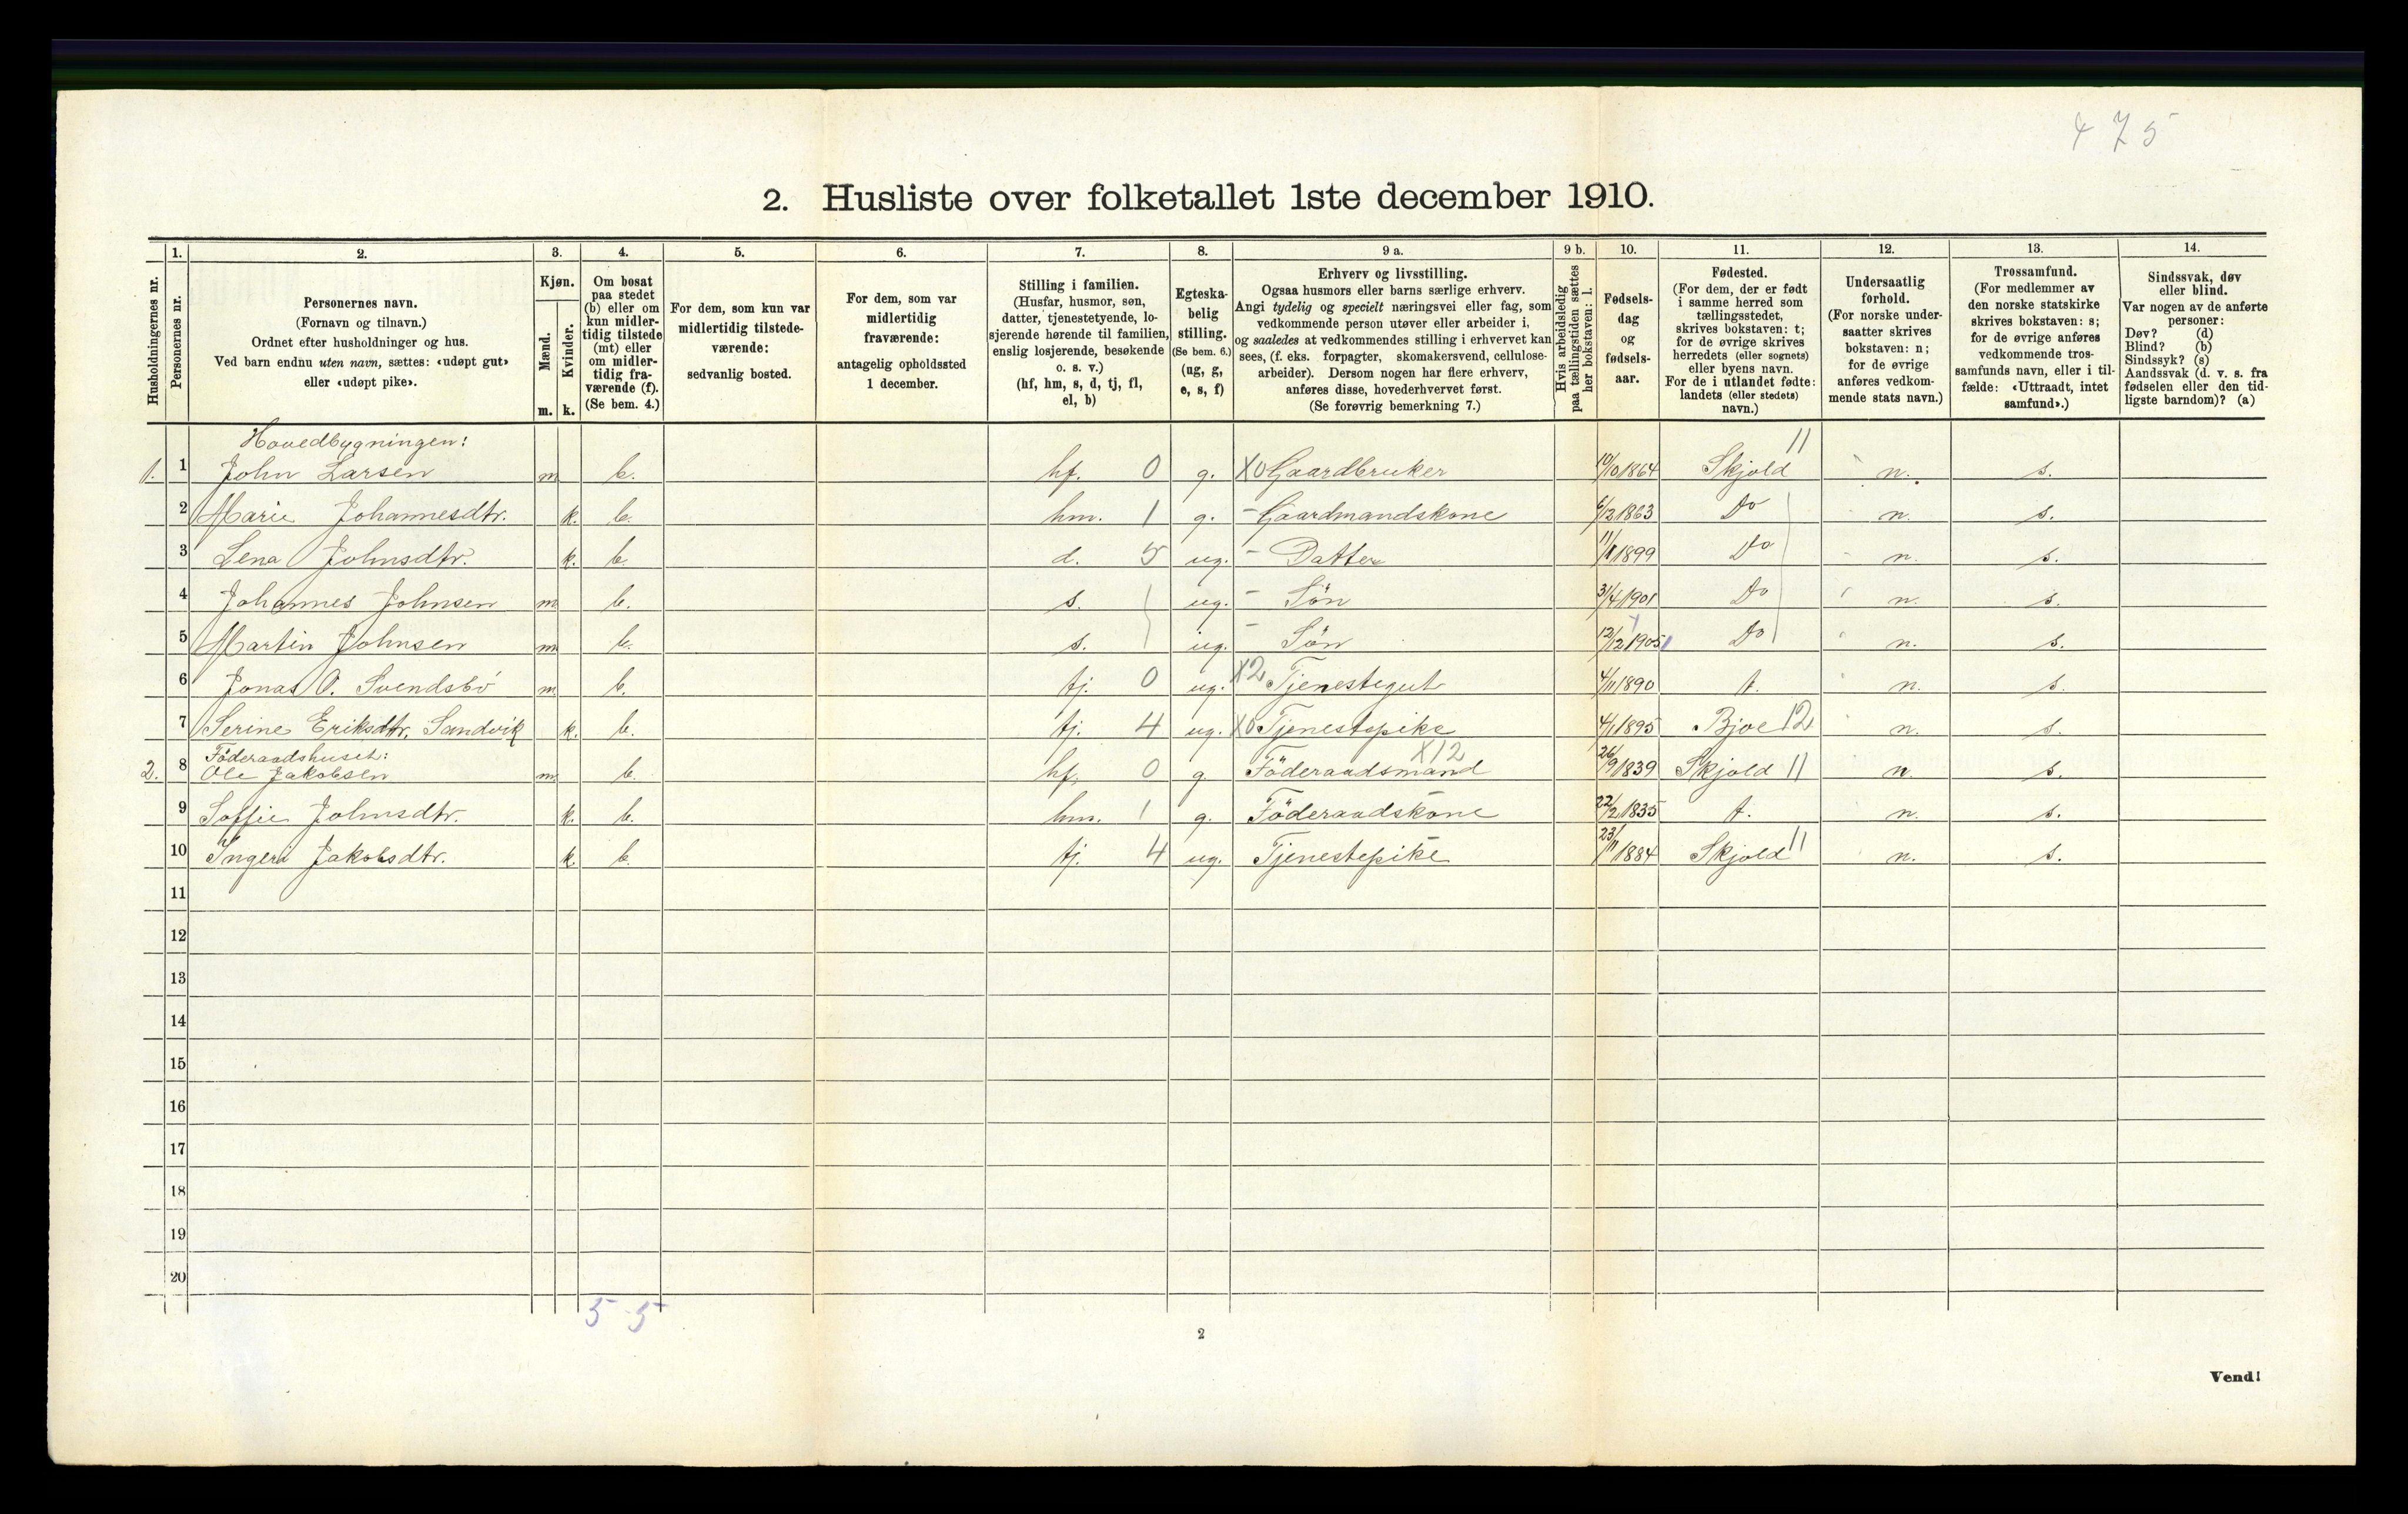 475
2. Husliste over folketallet 1ste december 1910.
Husholdningernes nr.
1.
Personernes nr.
2.
Personernes navn.
(Fornavn og tilnavn.)
Ordnet efter husholdninger og hus.
Ved barn endnu uten navn, sættes: «udøpt gut»
eller «udøpt pike».
3.
Kjøn.
Mænd.
Kvinder.
m. k.
4.
Om bosat
paa stedet
(b) eller om
kun midler-
tidig tilstede
(mt) eller
om midler-
tidig fra-
værende (f).
(Se bem. 4.)
5.
For dem, som kun var
midlertidig tilstede-
værende:
sedvanlig bosted.
6.
For dem, som var
midlertidig
fraværende:
antagelig opholdssted
1 december.
7.
Stilling i familien.
(Husfar, husmor, søn,
datter, tjenestetyende, lo-
sjerende hørende til familien,
enslig losjerende, besøkende
o. s. v.)
(hf, hm, s, d, tj, fl,
el, b)
8.
Egteska-
belig
stilling.
(Se bem. 6.)
(ug, g,
e, s, f)
9 a.
Erhverv og livsstilling.
Ogsaa husmors eller barns særlige erhverv.
Angi tydelig og specielt næringsvei eller fag, som
vedkommende person utøver eller arbeider i,
og saaledes at vedkommendes stilling i erhvervet kan
sees, (f. eks. forpagter, skomakersvend, cellulose-
arbeider). Dersom nogen har flere erhverv,
anføres disse, hovederhvervet først.
(Se forøvrig bemerkning 7.)
9 b.
Hvis arbeidsledig
paa tællingstiden sættes
her bokstaven: l.
10.
Fødsels-
dag
og
fødsels-
aar.
11.
Fødested.
(For dem, der er født
i samme herred som
tællingsstedet,
skrives bokstaven: t;
for de øvrige skrives
herredets (eller sognets)
eller byens navn.
For de i utlandet fødte:
landets (eller stedets)
navn.)
12.
Undersaatlig
forhold.
(For norske under-
saatter skrives
bokstaven: n;
for de øvrige
anføres vedkom-
mende stats navn.)
13.
Trossamfund.
(For medlemmer av
den norske statskirke
skrives bokstaven: s;
for de øvrige anføres
vedkommende tros-
samfunds navn, eller i til-
fælde: «Uttraadt, intet
samfund».)
14.
Sindssvak, døv
eller blind.
Var nogen av de anførte
personer:
Døv? (d)
Blind? (b)
Sindssyk? (s)
Aandssvak (d. v. s. fra
fødselen eller den tid-
ligste barndom)? (a)
Hovedbygningen:
1. 1 John Larsen m. b. hf. 0 g. X0 Gaardbruker 10/10 1864 Skjold 11 n. s.
2 Marie Johannesdtr. k. b. hm. 1 g. - Gaardmandskone 6/12 1863 Do n. s.
3 Lena Johnsdtr. k. b. d. 5 ug. - Datter 1899 Do n. s.
4 Johannes Johnsen m. b. s. ug. - Søn 31/4 1901 Do n. s.
5 Martin Johnsen m. b. s. ug. - Søn 12/12 1905 Do n. s.
6 Jonas O. Svendsbö m. b. tj. 0 ug. X2 Tjenestegut 4/11 1890 t. n. s.
7 Serine Eriksdtr. Sandvik k. b. tj. 4 ug. X0 Tjenestepike 4/1 1895 Bjoe 12 n. s.
Föderaadshuset:
2. 8 Ole Jakobsen m. b. hf. 0 g. Föderaadsmand X12 26/9 1839 Skjold 11 n. s.
9 Soffie Johnsdtr. k. b. hm. 1 g. Föderaadskone 22/2 1835 t. n. s.
10 Ingeri Jakobsdtr. k. b. tj. 4 ug. Tjenestepike 23/11 1884 Skjold 11 n. s.
11
12
13
14
15
16
17
18
19
20
5-5
2
Vend!